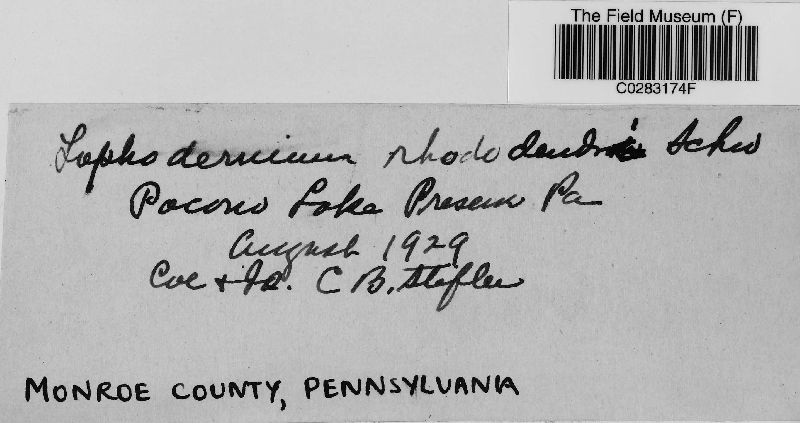 The Field Museum (F)
C0283174F
Lophodermium rhododendri Schw
Pocono Lake Preserve Pa
August 1929
Col + Id. C B. Stifler
MONROE COUNTY, PENNSYLVANIA